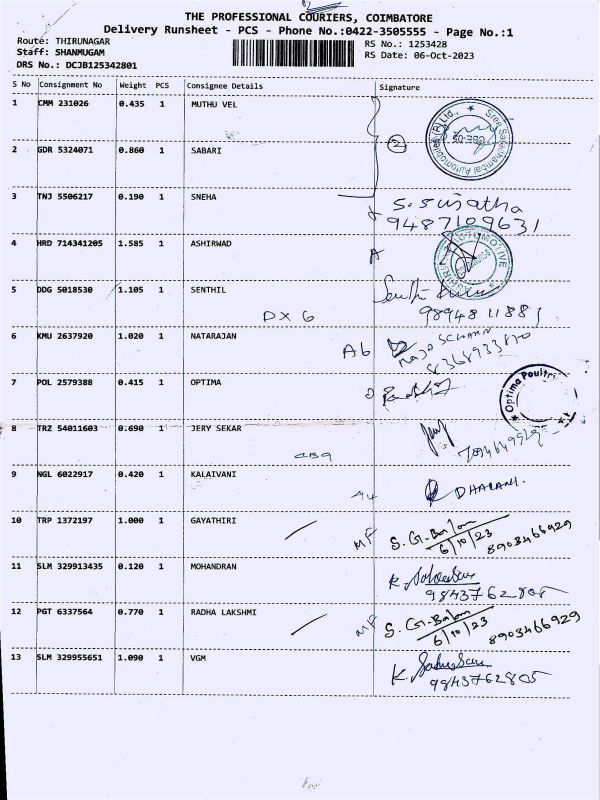 THE PROFESSIONAL COURIERS, COIMBATORE
Delivery Runsheet - PCS - Phone No.:0422-3505555 - Page No.:1
Route: THIRUNAGAR
Staff: SHANMUGAM
DRS No.: DCJB125342801
RS No.: 1253428
RS Date: 06-Oct-2023
S No Consignment No Weight PCS Consignee Details Signature
1 CMM 231026 0.435 1 MUTHU VEL
2 GDR 5324071 0.860 1 SABARI 2
3 TNJ 5506217 0.190 1 SNEHA S. Sujatha
9487109631
4 HRD 714341205 1.585 1 ASHIRWAD A
5 DDG 5018530 1.105 1 SENTHIL Senthil Kumar
DX 6
6 KMU 2637920 1.020 1 NATARAJAN
A6
7 POL 2579388 0.415 1 OPTIMA Optima Poultri
8 TRZ 54011603 0.690 1 JERY SEKAR
9 NGL 6022917 0.420 1 KALAIVANI DHARANI.
10 TRP 1372197 1.000 1 GAYATHIRI MF S. G. Balan
6/10/23 8903466929
11 SLM 329913435 0.120 1 MOHANDRAN
12 PGT 6337564 0.770 1 RADHA LAKSHMI MF S. G. Balan
6/10/23 8903466929
13 SLM 329955651 1.090 1 VGM
9843762805